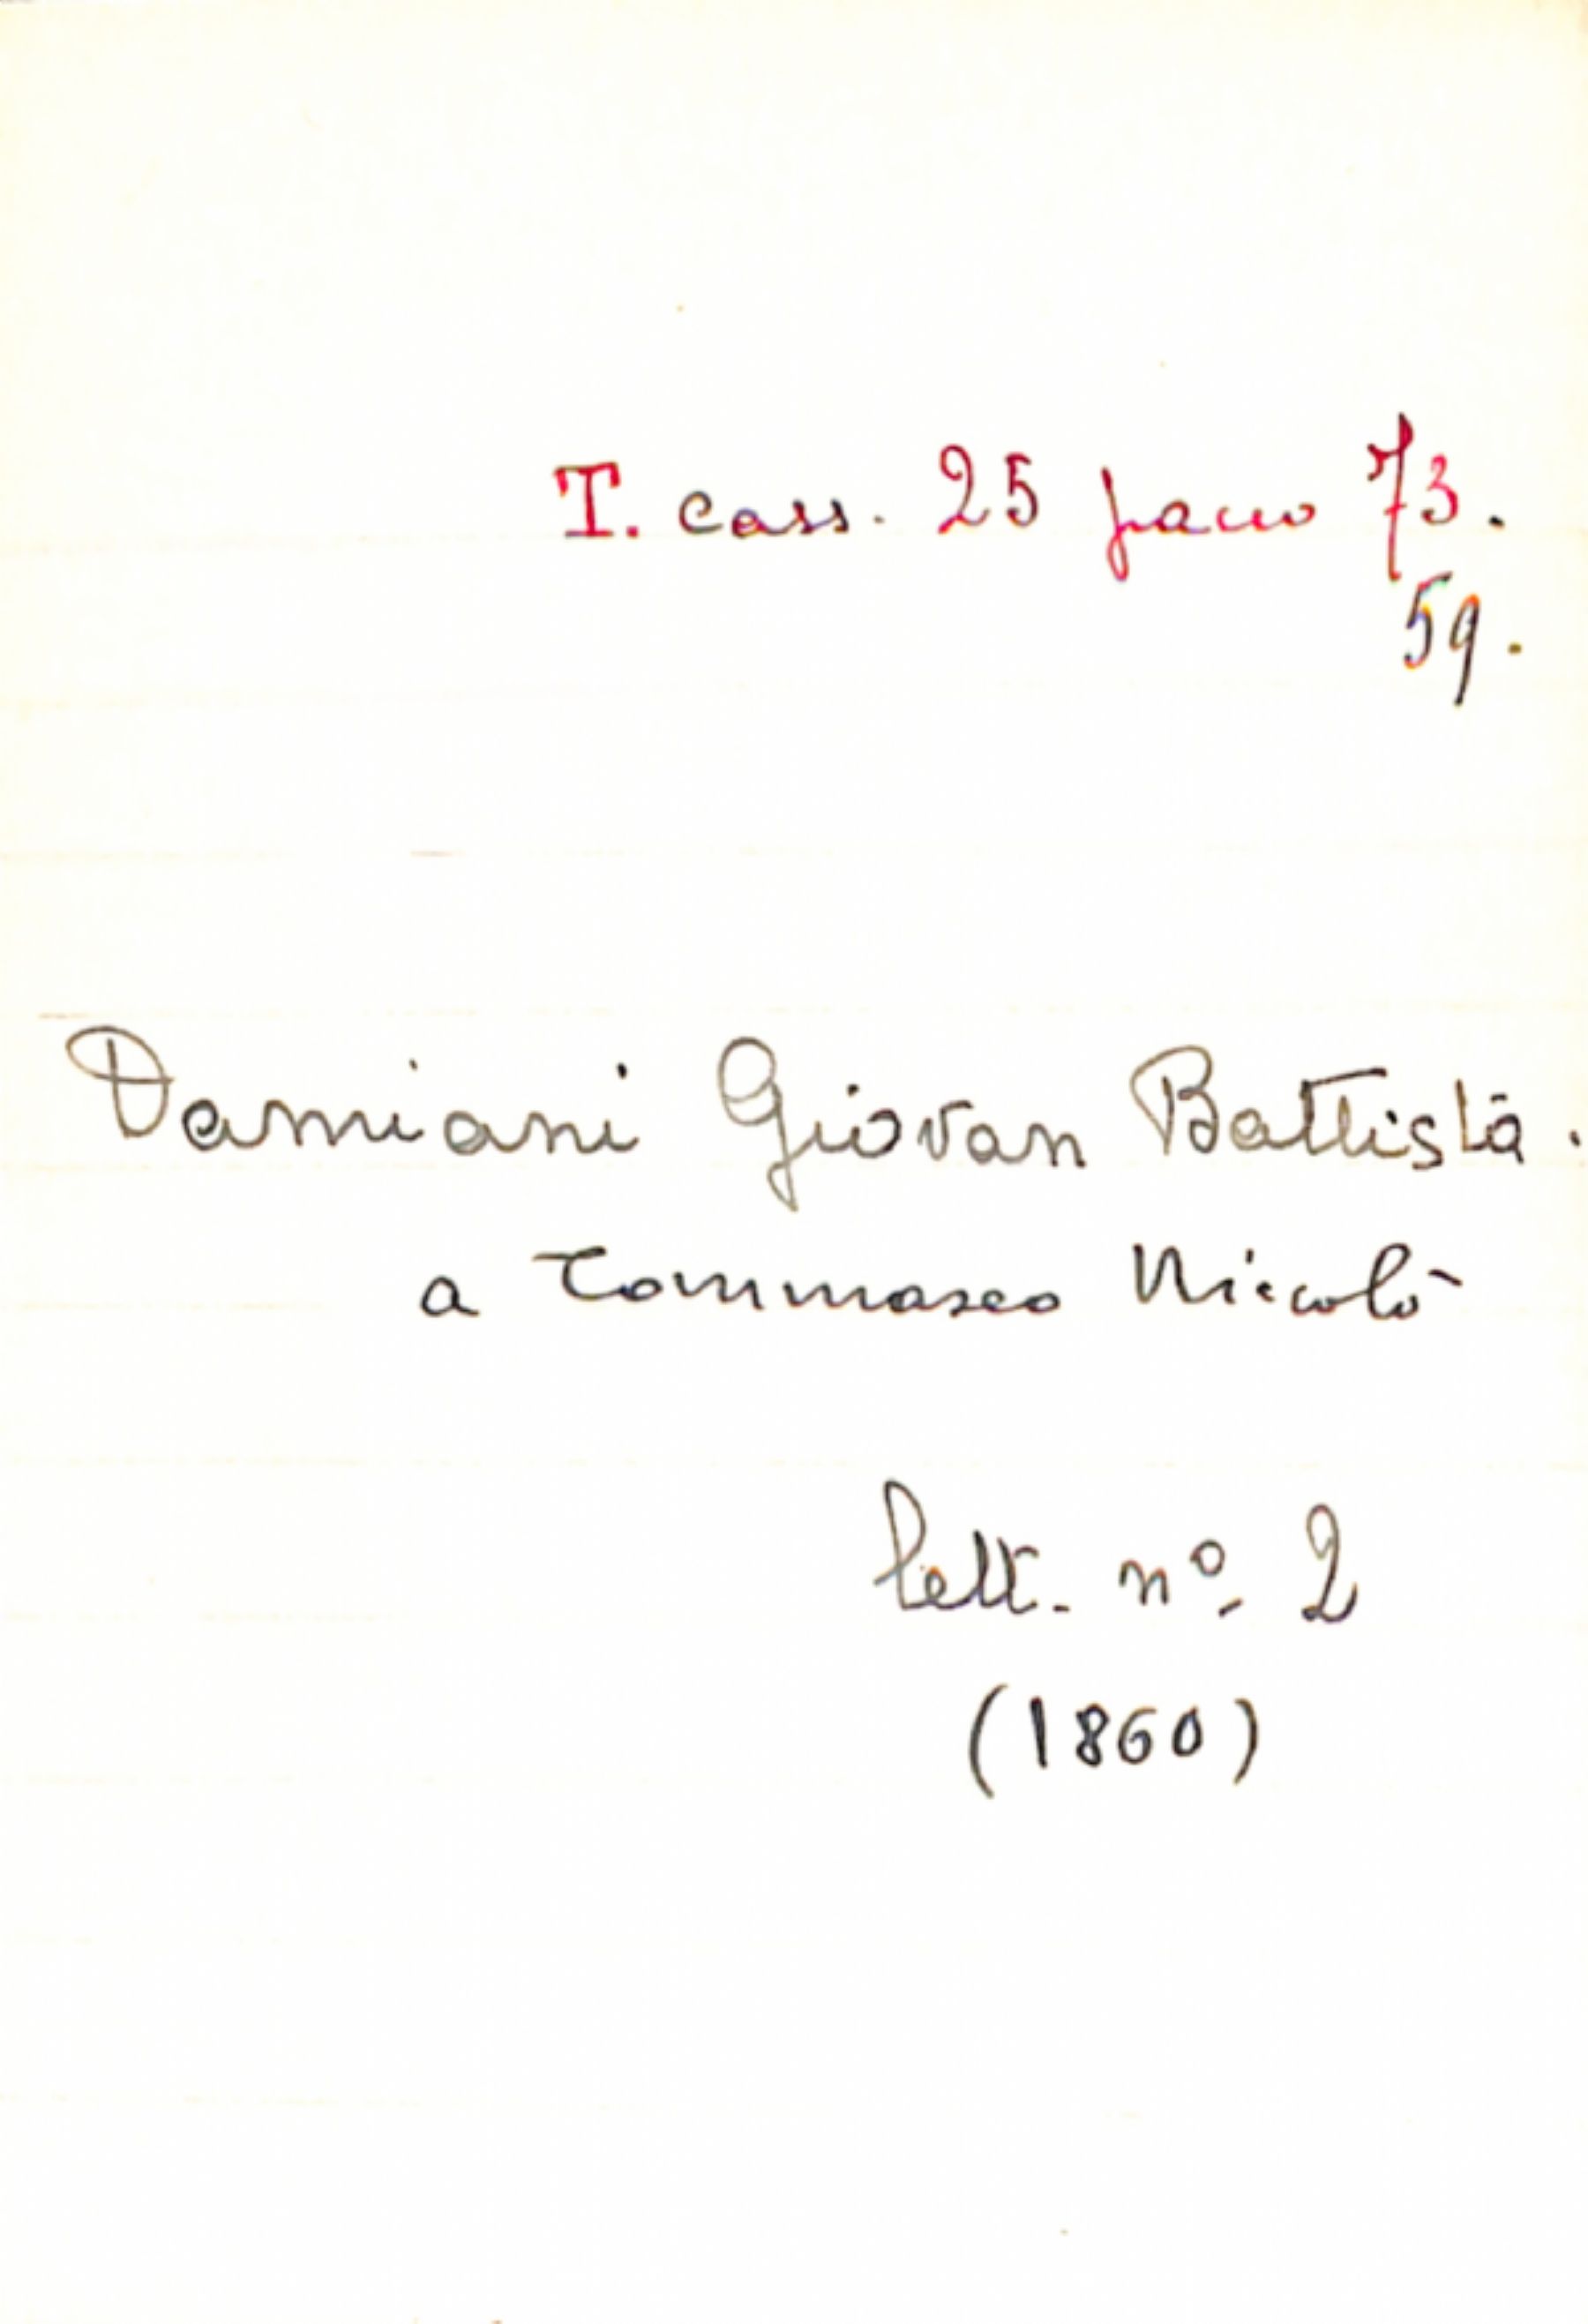 T. cass. 25 pacco 73.
59.
Damiani Giovan Battista.
a Tommaseo Niccolò
lett. nº 2
(1860)